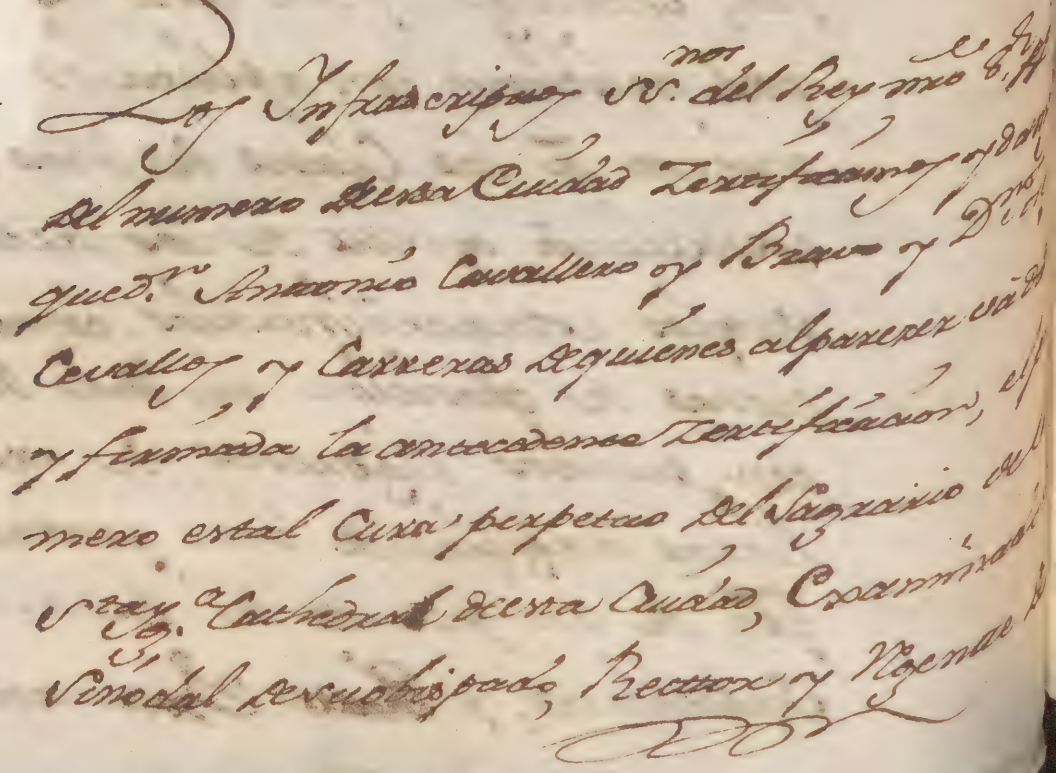 Los Ynfrascriptos ss.nos del Rey nro s.r
del numero de esta Ciudad Zertificamos y damos
que d.n Antonio Cavallero y Bravo y D.n
Cevallos y Carreras de quienes al parecer està
y firmada la antecedente Zertificacion, el
mero es tal Cura perpetuo del Sagrario de
S.ta Yg.a Cathedral de esta Ciudad, Examinador
Sinodal de su obispado, Recttor y Rgente